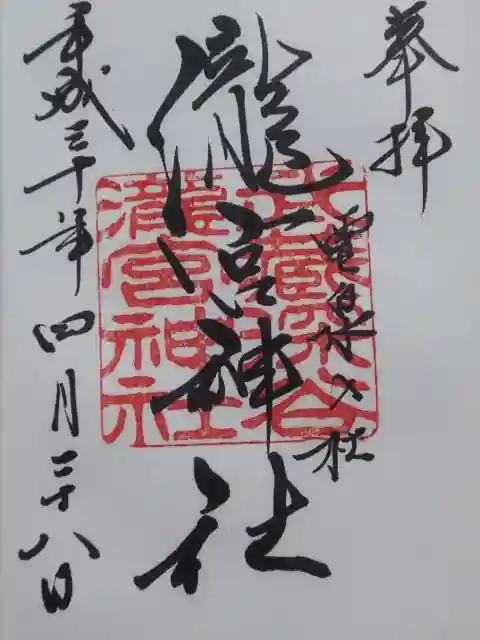 奉拝
瀧宮神社
武蔵深谷
瀧宮神社
平成三十年四月二十八日